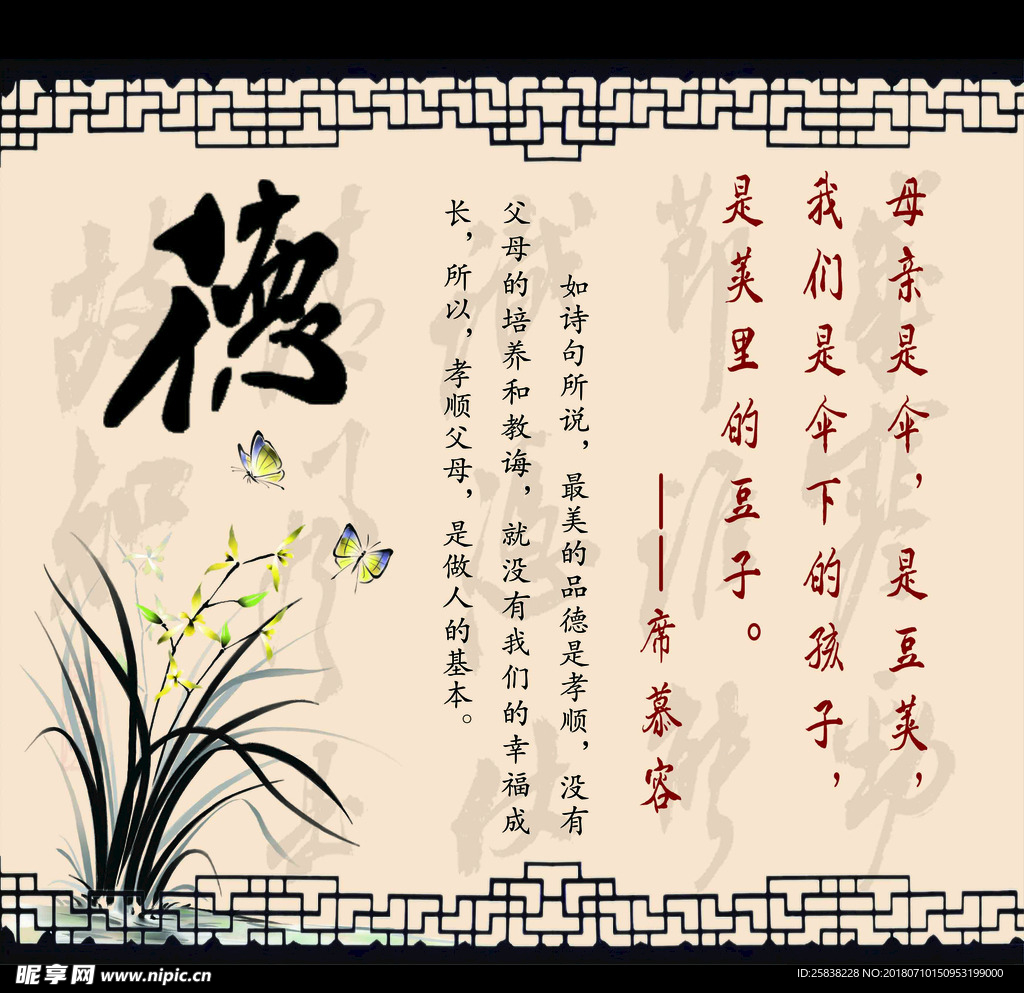 母亲是伞，是豆荚，
我们是伞下的孩子，
是荚里的豆子。
——席慕容
如诗句所说，最美的品德是孝顺，没有
父母的培养和教诲，就没有我们的幸福成
长，所以，孝顺父母，是做人的基本。
德
昵享网 www.nipic.cn
ID:25838228 NO:20180710150953199000